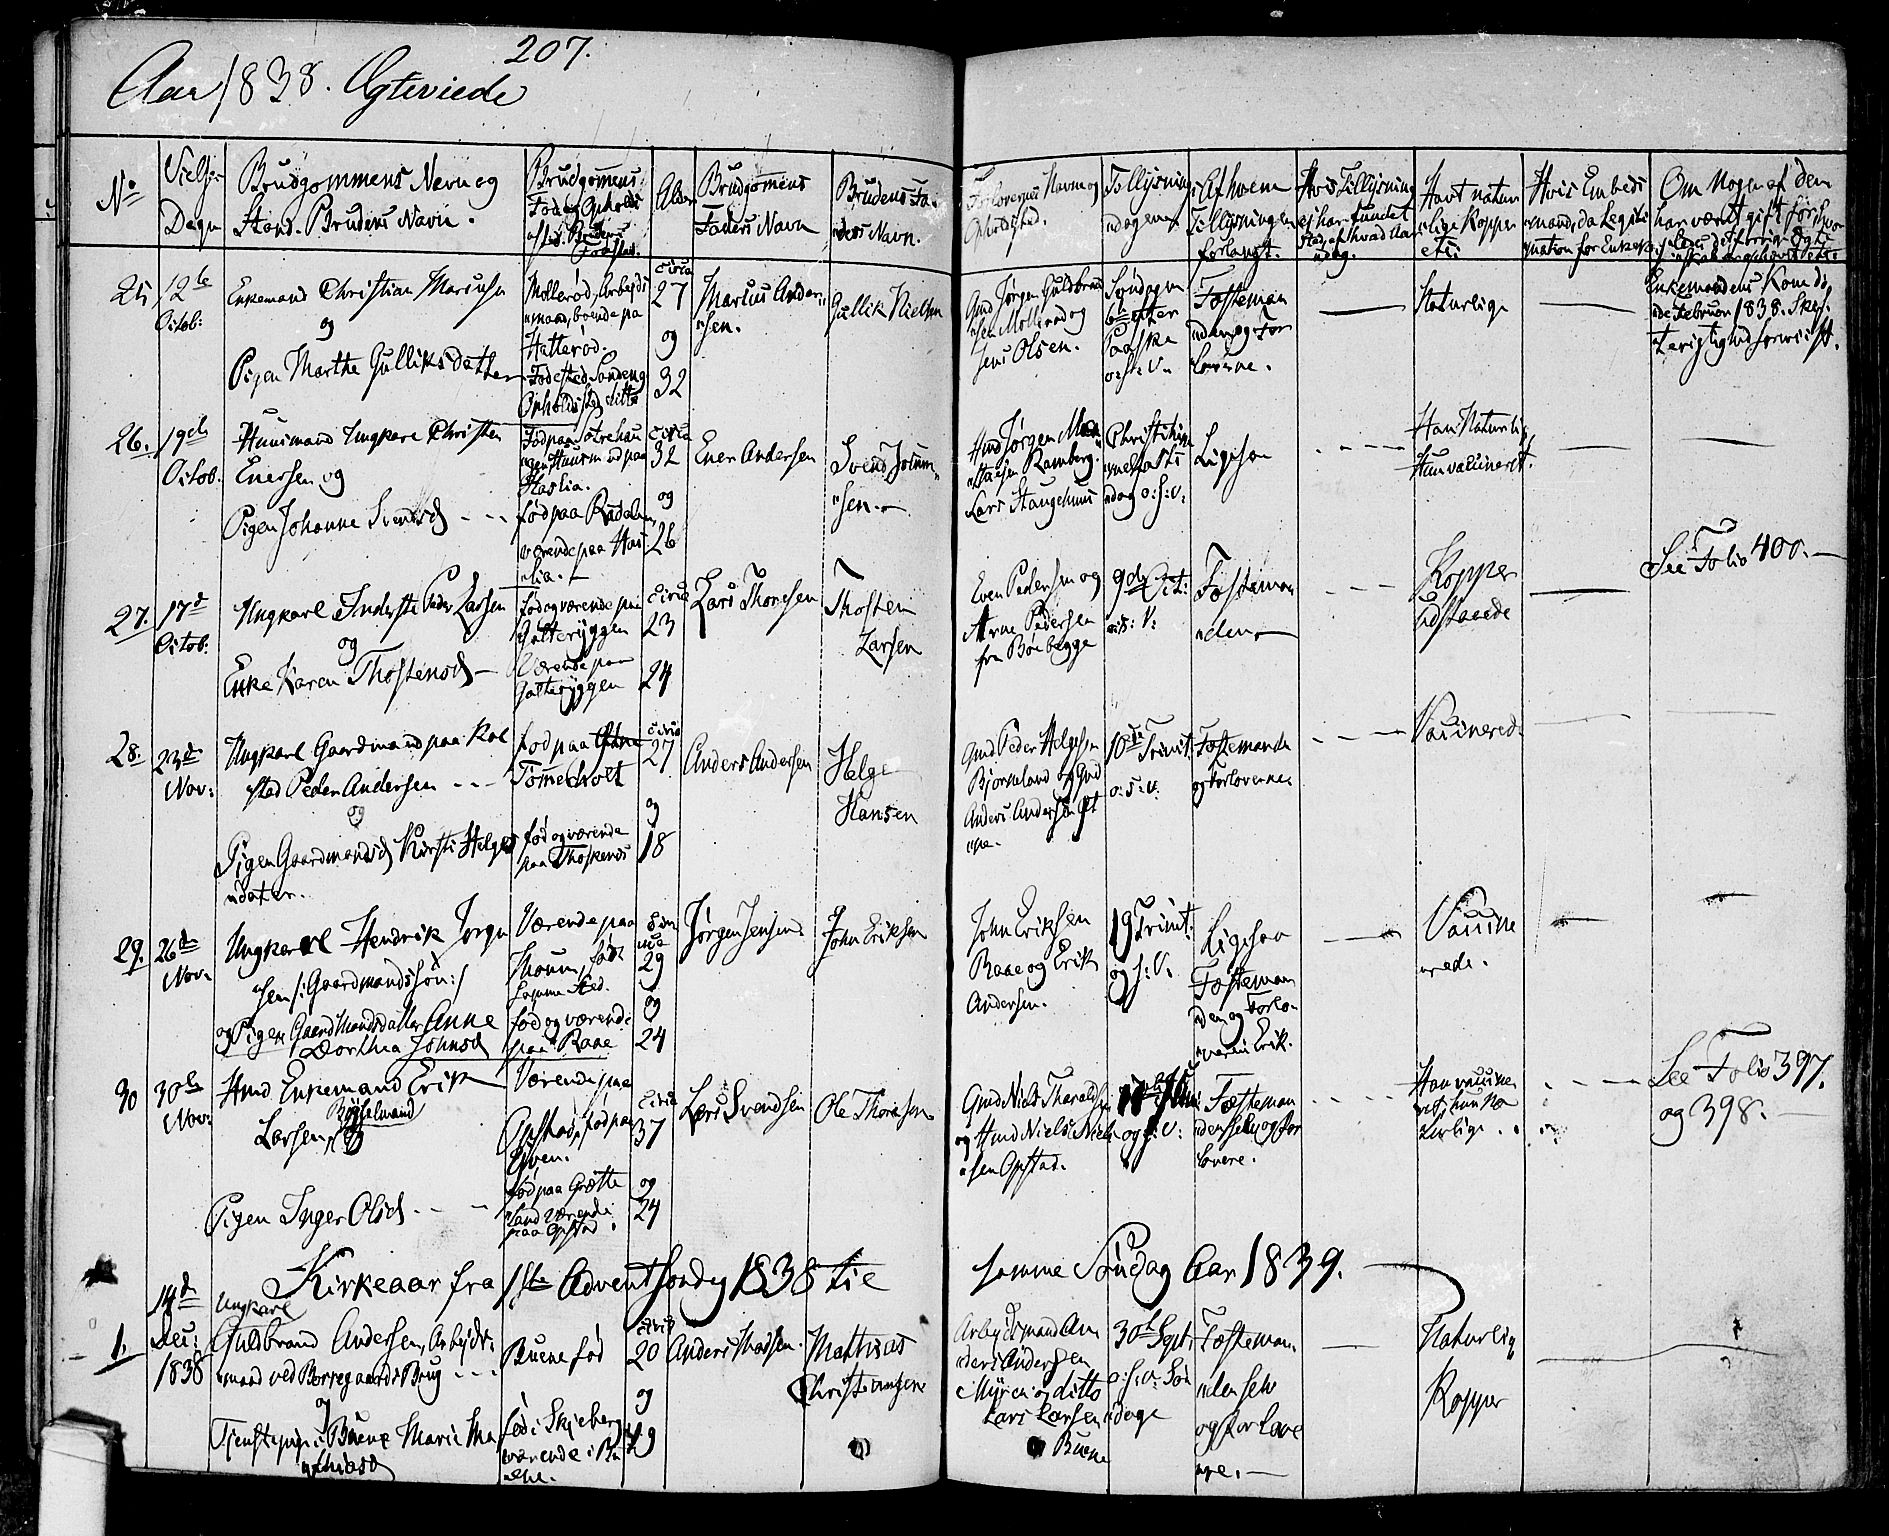 207.
Aar 1838. Ægteviede
No
Vielses
Dagen
Brudgommens Navn og
Stand. Brudens Navn.
Brudgomens
Føde og Opholds
sted. Brudens
Fødested.
Alder
Brudgomens
Faders Navn
Brudens Fa-
ders Navn.
Forlovernes Navn og
Opholdsted.
Tillysnings
dagene
Af hvem
Tillysningen
forlangt.
Hvis Tillysning
ej har fundet
Sted, af hvad Aar-
sag.
Havt natur
lige Kopper
etc:
Hvis Embeds
mand, da Legiti
mation for Enkek.
Om Nogen af dem
har været gift før, hvor
ledes det forrige Ægte
skab er ophævet etc:
25
12te
Octob:
Enkemand Christian Mariusen
og
Pigen Marthe Gulliksdatter
Mollerød, Arbejds
mand, boende paa
Hatterød.
Fødested Sondeng
Opholdsted ditto
circa
27
og
32
Marius Ander-
sen.
Gullik Nielsen
Gmd Jørgen Guldbrand
sen Mollerød og
Jens Olsen.
Søndagen
6te efter
Paaske
o: s: v.
Fæsteman
den og For
loverne.
Naturlige
Enkemandens Kone dø
de Februar 1838. Skif-
terigtighed forviist.
26.
19de
Octob.
Huusmand Ungkarl Christen
Enersen og
Pigen Johanne Svendsd
Haslia.
fød paa Rødalen,
værende paa Has
lia.
circa
32
og
26
Ener Andersen
Svend Joium
sen.
Hmd Jørgen
Ramberg.
Lars Haugehuus
dag o: s: v:
Ligesaa
Han Naturlig
Hun vaccineret.
27.
17d
Octob:
Ungkarl Inderste Peder Larsen
og
Enke Karen Thostensd
fød og værende paa
Gatteryggen
Værende paa
Gatteryggen
circa
23
24
Lars Thoresen
Thosten
Larsen
Even Pedersen og
Arne Pedersen
fra Bøe begge
9de Oct:
o: s: v:
Fæsteman
den
Kopper
udstaaede
See Folio 400.
28.
23de
Nov:
Ungkarl Gaardmand paa Kol
stad Peder Andersen
og
Pigen Gaardmandsd Kirsti Helges
datter.
fød paa
Tomeholt
fød og værende
paa Thoskeruds
circa
27
og
18
Anders Andersen
Helge
Hansen
Gmd Peder Helgesen
Bjørneland og Gmd
Anders Andersen
10de Trinit:
o: s: v:
Fæstemanden
og Forloverne
Vaccinered.
29.
26de
Nov.
Ungkarl Hendrik Jørgen
sen /: Gaardmandssøn :/
og Pigen Gaardmandsdatter Anne
Dorthea Johnsd
Værende paa
Thoum, født
samme Sted.
fød og værende
paa Raae
Circa
29
og
24
Jørgen Jensen
John Eriksen
John Eriksen
Raae og Erik
Andersen.
19 Trinit:
og s: v:
Ligesaa
Fæsteman
den og Forlo-
veren Erik.
Vaccine
rede.
30
30te
Nov.
Hmd Enkemand Erik
Bøsselmand
Larsen, og
Pigen Inger Olsd
Værende paa
Opstad, fød paa
fød paa Grøtte
land værende
paa Opstad.
circa
37
og
24
Lars Svendsen
Ole Thoresen
Gmd Niels Tharaldsen
og Hmd Niels Niel
sen Opstad.
og s: v:
Fæsteman
den selv og For
lovere.
Han vaccine
ret, hun Na
turlige.
See Folio 397.
og 398.
Kirkeaar fra 1ste Advent Søndag 1838 til
samme Søndag Aar 1839.
1.
14de
Dec:
1838
Ungkarl
Guldbrand Andersen, Arbejds-
mand ved Borregaards Brug
og
Tjenstepige i Buene Marie Ma
thiasd
Buene fød
fød i Skjeberg
værende i Bu
ene.
circa
20
og
19
Anders Hansen.
Mathias
Christiansen
Arbejdsmand An
ders Andersen
Myren og ditto
Lars Larsen
Buene
30te Sept:
o: s: v: Søn
dage
Fæsteman-
den selv
og forlove
re.
Naturlig
Kopper